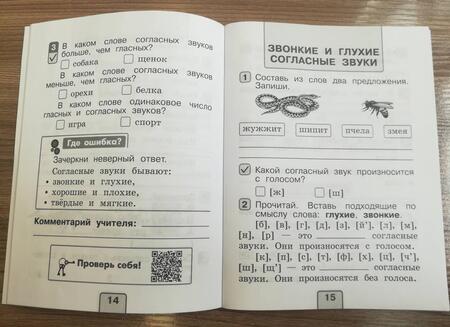 3 В каком слове согласных звуков
больше, чем гласных?
собака щенок
В каком слове согласных звуков
меньше, чем гласных?
орехи белка
В каком слове одинаковое число
гласных и согласных звуков?
игра спорт
Где ошибка?
Зачеркни неверный ответ.
Согласные звуки бывают:
• звонкие и глухие,
• хорошие и плохие,
• твёрдые и мягкие.
Комментарий учителя:
Проверь себя!
14
ЗВОНКИЕ И ГЛУХИЕ
СОГЛАСНЫЕ ЗВУКИ
1 Составь из слов два предложения.
Запиши.
жужжит шипит пчела змея
Какой согласный звук произносится
с голосом?
[ж] [ш]
2 Прочитай. Вставь подходящие по
смыслу слова: глухие, звонкие.
[б], [в], [г], [д], [з], [й'], [л], [м],
[н], [р] — это согласные
звуки. Они произносятся с голосом.
[к], [п], [с], [т], [ф], [х], [ц], [ч'],
[ш], [щ'] — это согласные
звуки. Они произносятся без голоса.
15